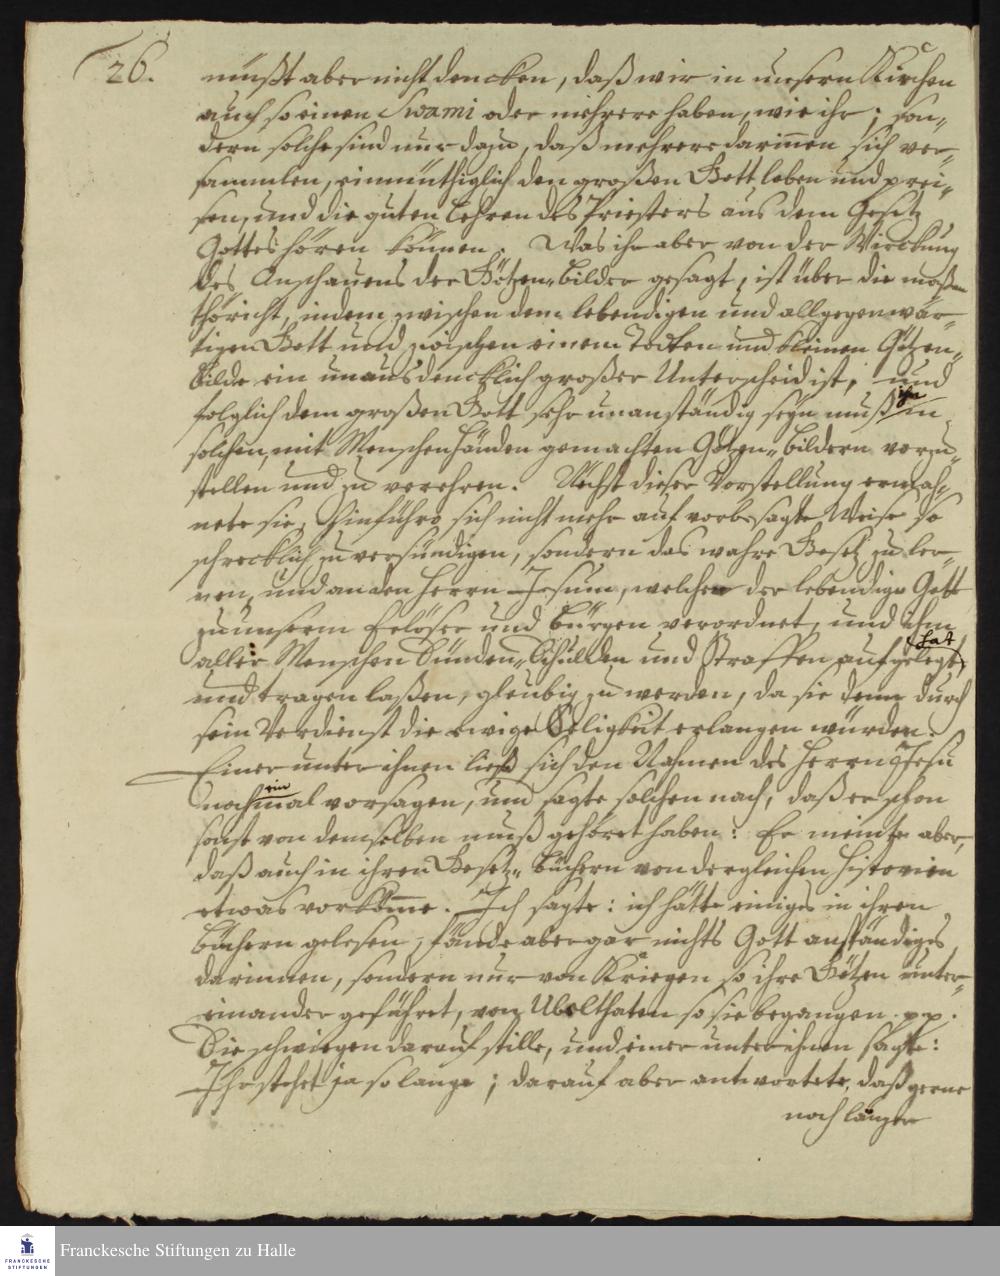 26.
müßt aber nicht dencken, daß wir in unsern Kirchen
auch so einen Swami oder mehrere haben, wie ihr; son„
dern solche sind nur dazu, daß mehrere darinnen sich ver„
sammlen, einmüthiglich den großen Gott loben und prei„
sen, und die guten Lehren des Priesters aus dem Gesetz
Gottes hören können. Was ihr aber von der Wirckung
des Anschauens der Götzen„bilder gesagt, ist über die maßen
thöricht, indem zwischen dem lebendigen und allgegenwär„
tigen Gott und zwischen einem todten und kleinen Götzen„
bilde ein unausdencklich großer Unterscheid ist, und
folglich dem großen Gott sehr unanständig seyn muß ihn in
solchen, mit Menschen Händen gemachten Götzen„bildern vorzu„
stellen und zu verehren. Nechst dieser Vorstellung ermah„
nete sie, hinführo sich nicht mehr auf vorbesagte Weise so
schrecklich zu versündigen, sondern das wahre Gesetz zu ler„
nen, und an den Herrn Jesum, welchen der lebendige Gott
zu unserm Erlöser und Bürgen verordnet, und ihm
aller Menschen Sünden„Schulden und Straffen aufgelegt hat
und tragen laßen, gläubig zu werden, da sie denn durch
sein Verdienst die ewige Seligkeit erlangen würden.
Einer unter ihnen ließ sich den Nahmen des Herrn Jesu
noch einmal vorsagen, und sagte solchen nach, daß er schon
sonst von demselben muß gehöret haben: Er meinte aber,
daß auch in ihren Gesetz„Büchern von dergleichen Historien
etwas vorkomme. Ich sagte: ich hätte einiges in ihren
Büchern gelesen, fände aber gar nichts Gott anständiges
darinnen, sondern nur von Kriegen so ihre Götzen unter„
einander geführet, von Ubelthaten so sie begangen. pp.
Sie schwiegen darauf stille, und einer unter ihnen sagte:
Ihr stehet ja so lange; darauf aber antwortete, daß gerne
noch länger
Franckesche Stiftungen zu Halle
FRANCKESCHE
STIFTUNGEN